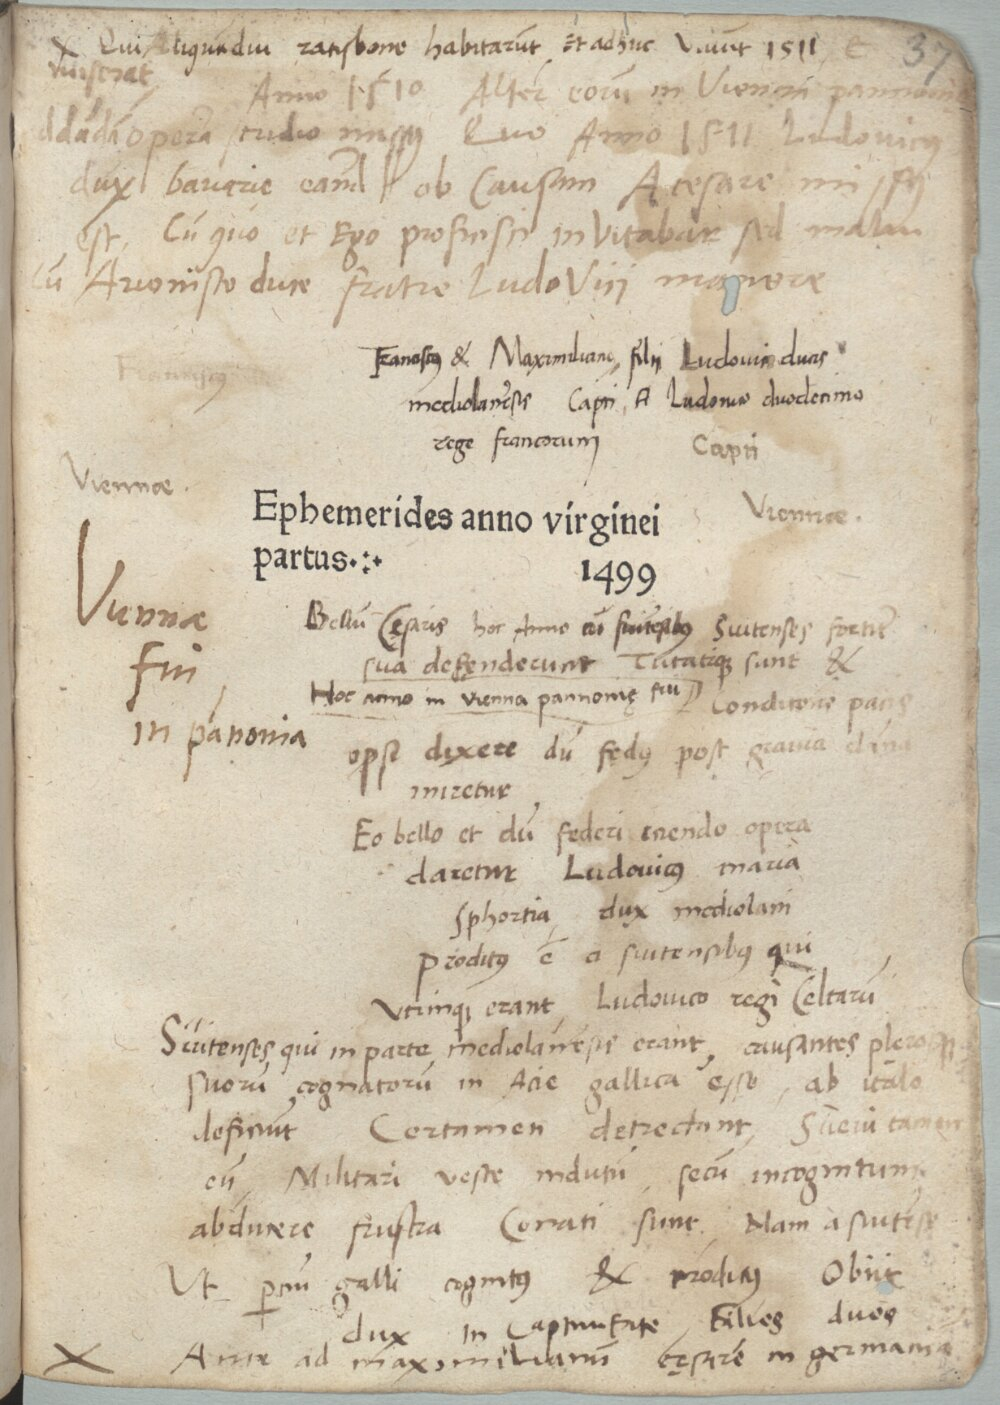 X Qui Aliqũndiu ratisbone habitarũt Et adhuc Viuũt 1511 37
Anno 1510 Alter eorũ in Vienam pannonie
opera studio missꝰ Quo Anno 1511 Ludovicꝰ
dux bavarie eand ob Causam A cesare missꝰ
est, Cũ quo et Ego proficisci invitabar sed malui
cũ Arionisto duce fratre Ludovici manere
Franciscꝰ & Maximilianꝰ filij Ludovici ducis
mediolanẽsis Capti A Ludovico duodecimo
rege francorum Capti
Viennae.
Viennae.
Ephemerides anno virginei
partus.
1499
Viennæ
fui
in pãnonia
Bellũ Cęsaris hoc Anno cũ suitẽsibꝰ Suitenses fortitẽ
sua defenderunt Tutatiqꝫ sunt &
Hoc anno in vienna pannonię fui Conditione pacis
dixere dũ fedꝰ post gravia dãna
iniretur
Eo bello et dũ federi ineundo opera
daretur Ludovicꝰ maria
Sphortia dux mediolani
proditꝰ ẽ a suitensibꝰ qui
Vtrinqꝫ erant Ludovico regi Celtarũ
Suitenses qui in parte mediolanẽsis erant, causantes plerosqꝫ
suorũ cognatorũ in Acie gallica esse, ab italo
deficiunt Certamen detrectant, Suevi tamen
eũ Militari veste indutũ secũ incognitum
abducere frustra Conati sunt Nam a suitẽse
Ut galli cognitꝰ & proditꝰ Obiit
dux in Captivitate Filios duos
X Ante ad maximilianũ cęsarẽ in germania